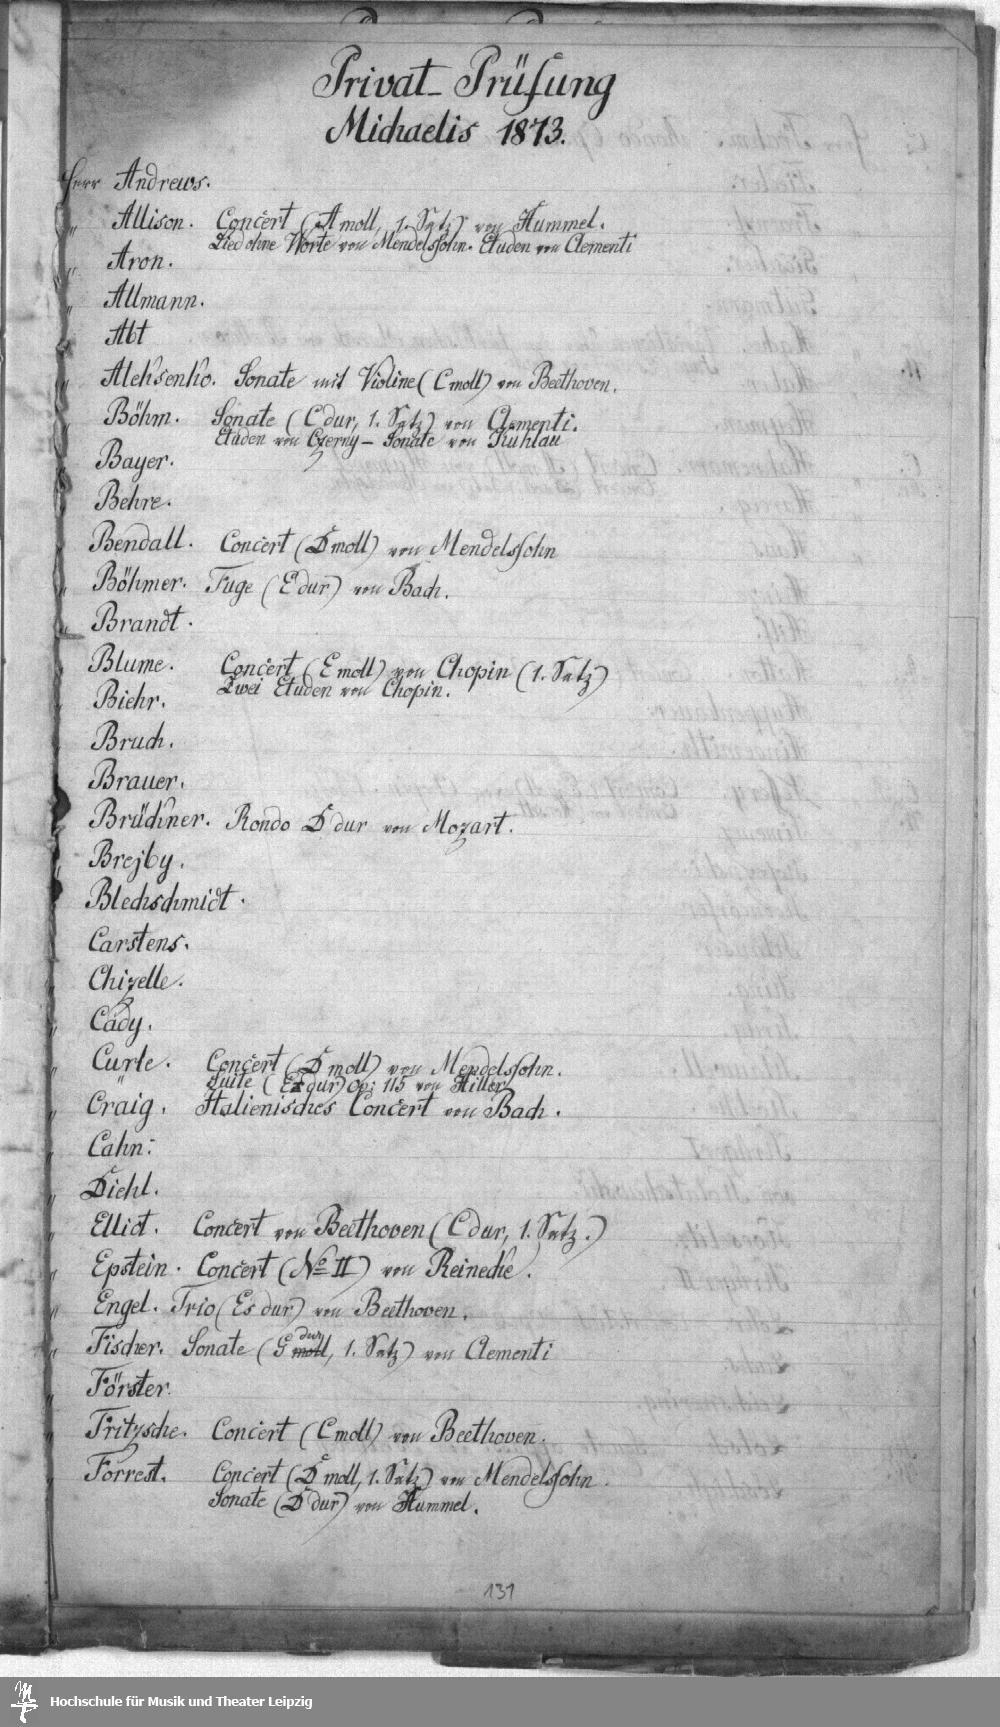 Privat-Prüfung
Michaelis 1873.
Herr Andrews.
" Allison. Concert (A moll, 1. Satz) von Hummel.
Lied ohne Worte von Mendelssohn. Etuden von Clementi
" Aron.
" Allmann.
" Abt
" Aleksenko. Sonate mit Violine (C moll) von Beethoven.
" Böhm. Sonate (C dur, 1. Satz) von Clementi.
Etuden von Czerny – Sonate von Kuhlau
" Bayer.
" Behre.
" Bendall. Concert (D moll) von Mendelssohn
" Böhmer. Fuge (E dur) von Bach.
" Brandt.
" Blume. Concert (E moll) von Chopin (1. Satz)
Zwei Etuden von Chopin.
" Biehr.
" Bruch.
" Brauer.
" Brückner. Rondo D dur von Mozart.
" Brejby.
" Blechschmidt.
" Carstens.
" Chizelle.
" Cady.
" Curte. Concert (D moll) von Mendelsohn.
" Suite (Es dur) Op: 115 von Hiller
" Craig. Italienisches Concert von Bach.
" Cahn:
" Diehl.
" Elliot. Concert von Beethoven (C dur, 1. Satz.)
" Epstein. Concert (No II) von Reinecke.
" Engel. Trio (Es dur) von Beethoven.
" Fischer. Sonate (G moll dur, 1. Satz) von Clementi
" Förster.
" Fritzsche. Concert (C moll) von Beethoven.
" Forrest. Concert (D moll, 1. Satz) von Mendelssohn.
Sonate (D dur) von Hummel.
131
Hochschule für Musik und Theater Leipzig